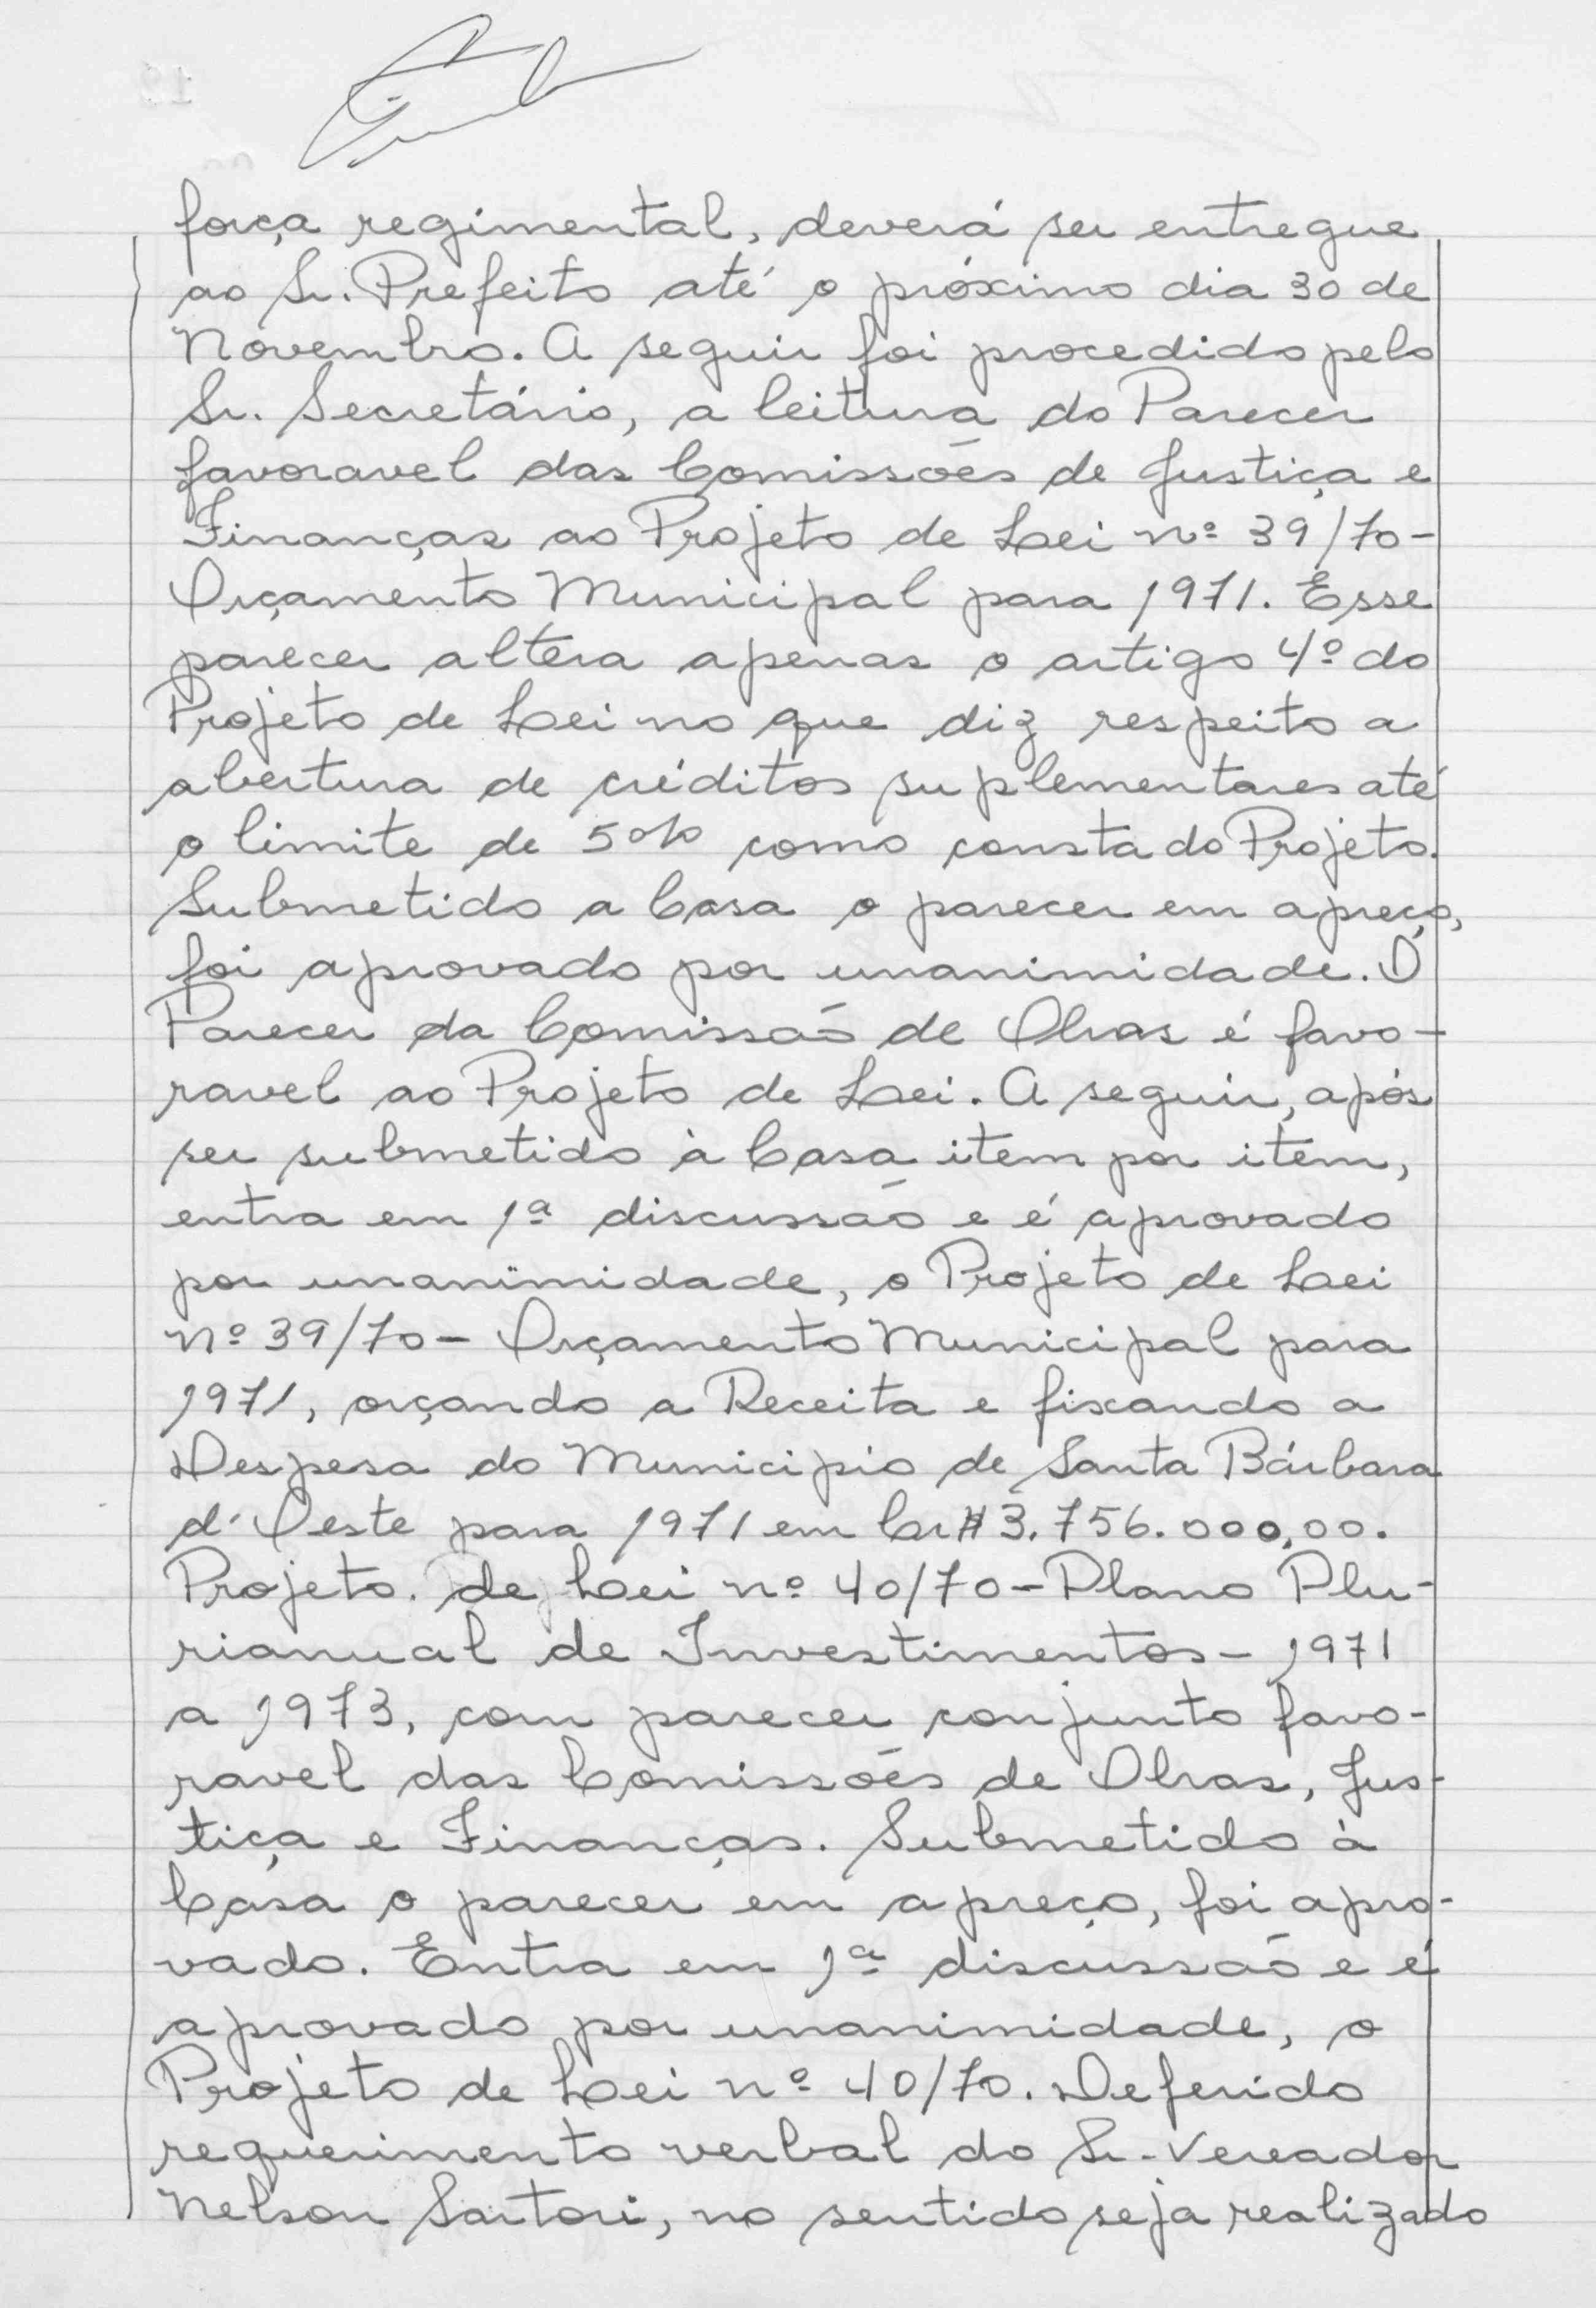 força regimental, deverá ser entregue
ao Sr. Prefeito até o próximo dia 30 de
Novembro. A seguir foi procedido pelo
Sr. Secretário, a leitura do Parecer
favoravel das Comissões de Justiça e
Finanças ao Projeto de Lei nº 39/70-
Orçamento Municipal para 1971. Esse
parecer altera apenas o artigo 4º do
Projeto de Lei no que diz respeito a
abertura de créditos suplementares até
o limite de 5% como consta do Projeto.
Submetido a Casa o parecer em apreço,
foi aprovado por unanimidade. O
Parecer da Comissão de Obras é favo-
ravel ao Projeto de Lei. A seguir, após
ser submetido à Casa item por item,
entra em 1ª discussão e é aprovado
por unanimidade, o Projeto de Lei
nº 39/70- Orçamento Municipal para
1971, orçando a Receita e fixando a
Despesa do Municipio de Santa Bárbara
d'Oeste para 1971 em Cr$ 3.756.000,00.
Projeto. de Lei nº 40/70-Plano Plu-
rianual de Investimentos- 1971
a 1973, com parecer conjunto favo-
ravel das Comissões de Obras, Jus-
tiça e Finanças. Submetido à
Casa o parecer em apreço, foi apro-
vado. Entra em 1ª discussão e é
aprovado por unanimidade, o
Projeto de Lei nº 40/70. Deferido
requerimento verbal do Sr. Vereador
Nelson Sartori, no sentido seja realizado